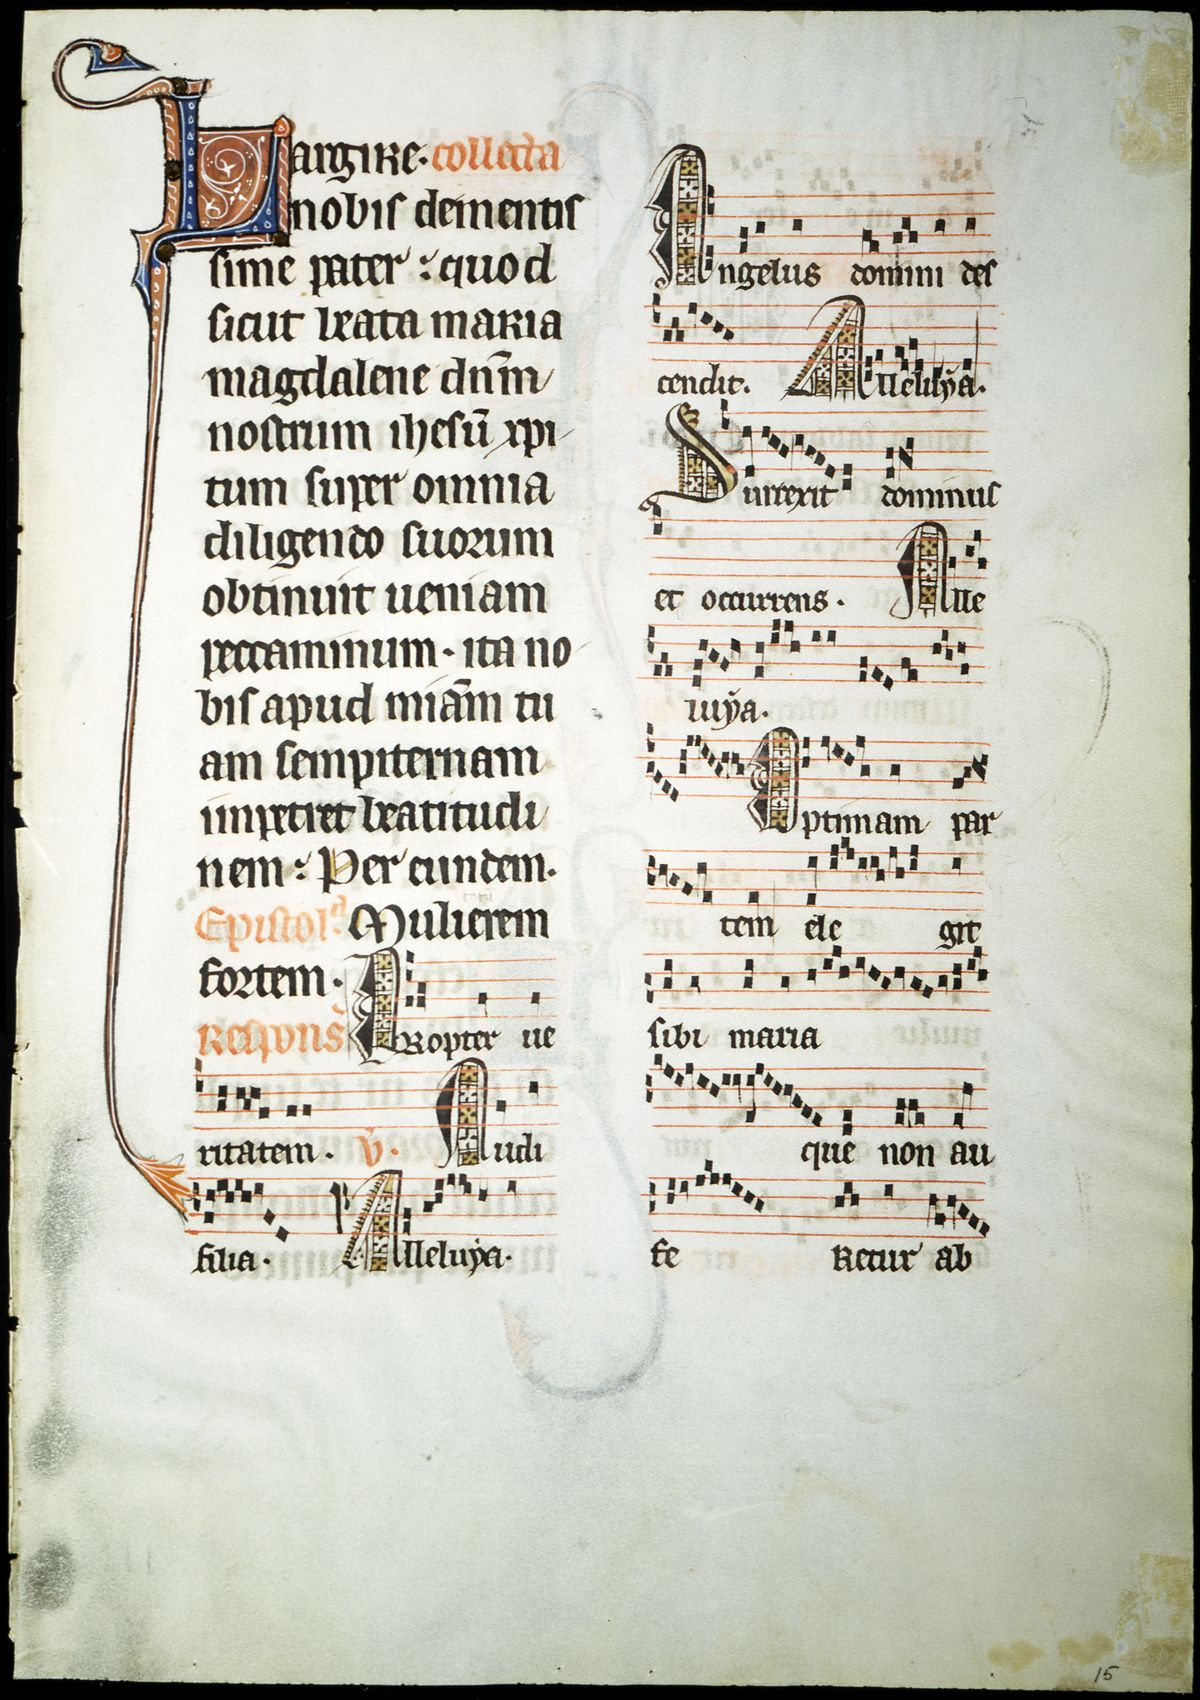 Largire. collecta
nobis clementis
sime pater : quod
sicut beata maria
magdalene dn̄m
nostrum ihesū xpi
tum super omnia
diligendo suorum
obtinuit ueniam
peccaminum. ita no
bis apud mīam tu
am sempiternam
impetret beatitudi
nem : Per eundem.
Epistola. Mulierem
fortem.
Respons̄ Propter ue
ritatem. v̄. Audi
filia. Alleluÿa.
Angelus domini des
cendit. Alleluÿa.
Surrexit dominus
et occurrens. Alle
luÿa.
Optimam par
tem ele git
sibi maria
que non au
fe Retur ab
15